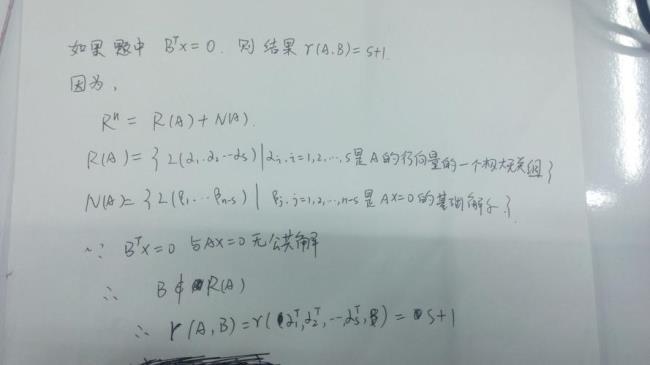 如果题中 BᵀX=0. 则结果 r(A,B)=s+1.
因为,
Rⁿ = R(A)+N(A).
R(A)={ L(α₁,α₂…αₛ) | αᵢ,i=1,2,…,s是A的行向量的一个极大无关组}
N(A)={ L(ρ₁,…ρₙ₋ₛ) | ρⱼ,j=1,2,…,n-s是AX=0的基础解系}.
∵ BᵀX=0 与AX=0 无公共解
∴ B∉R(A)
∴ r(A,B)=r(α₁ᵀ,α₂ᵀ,…,αₛᵀ,B)=s+1